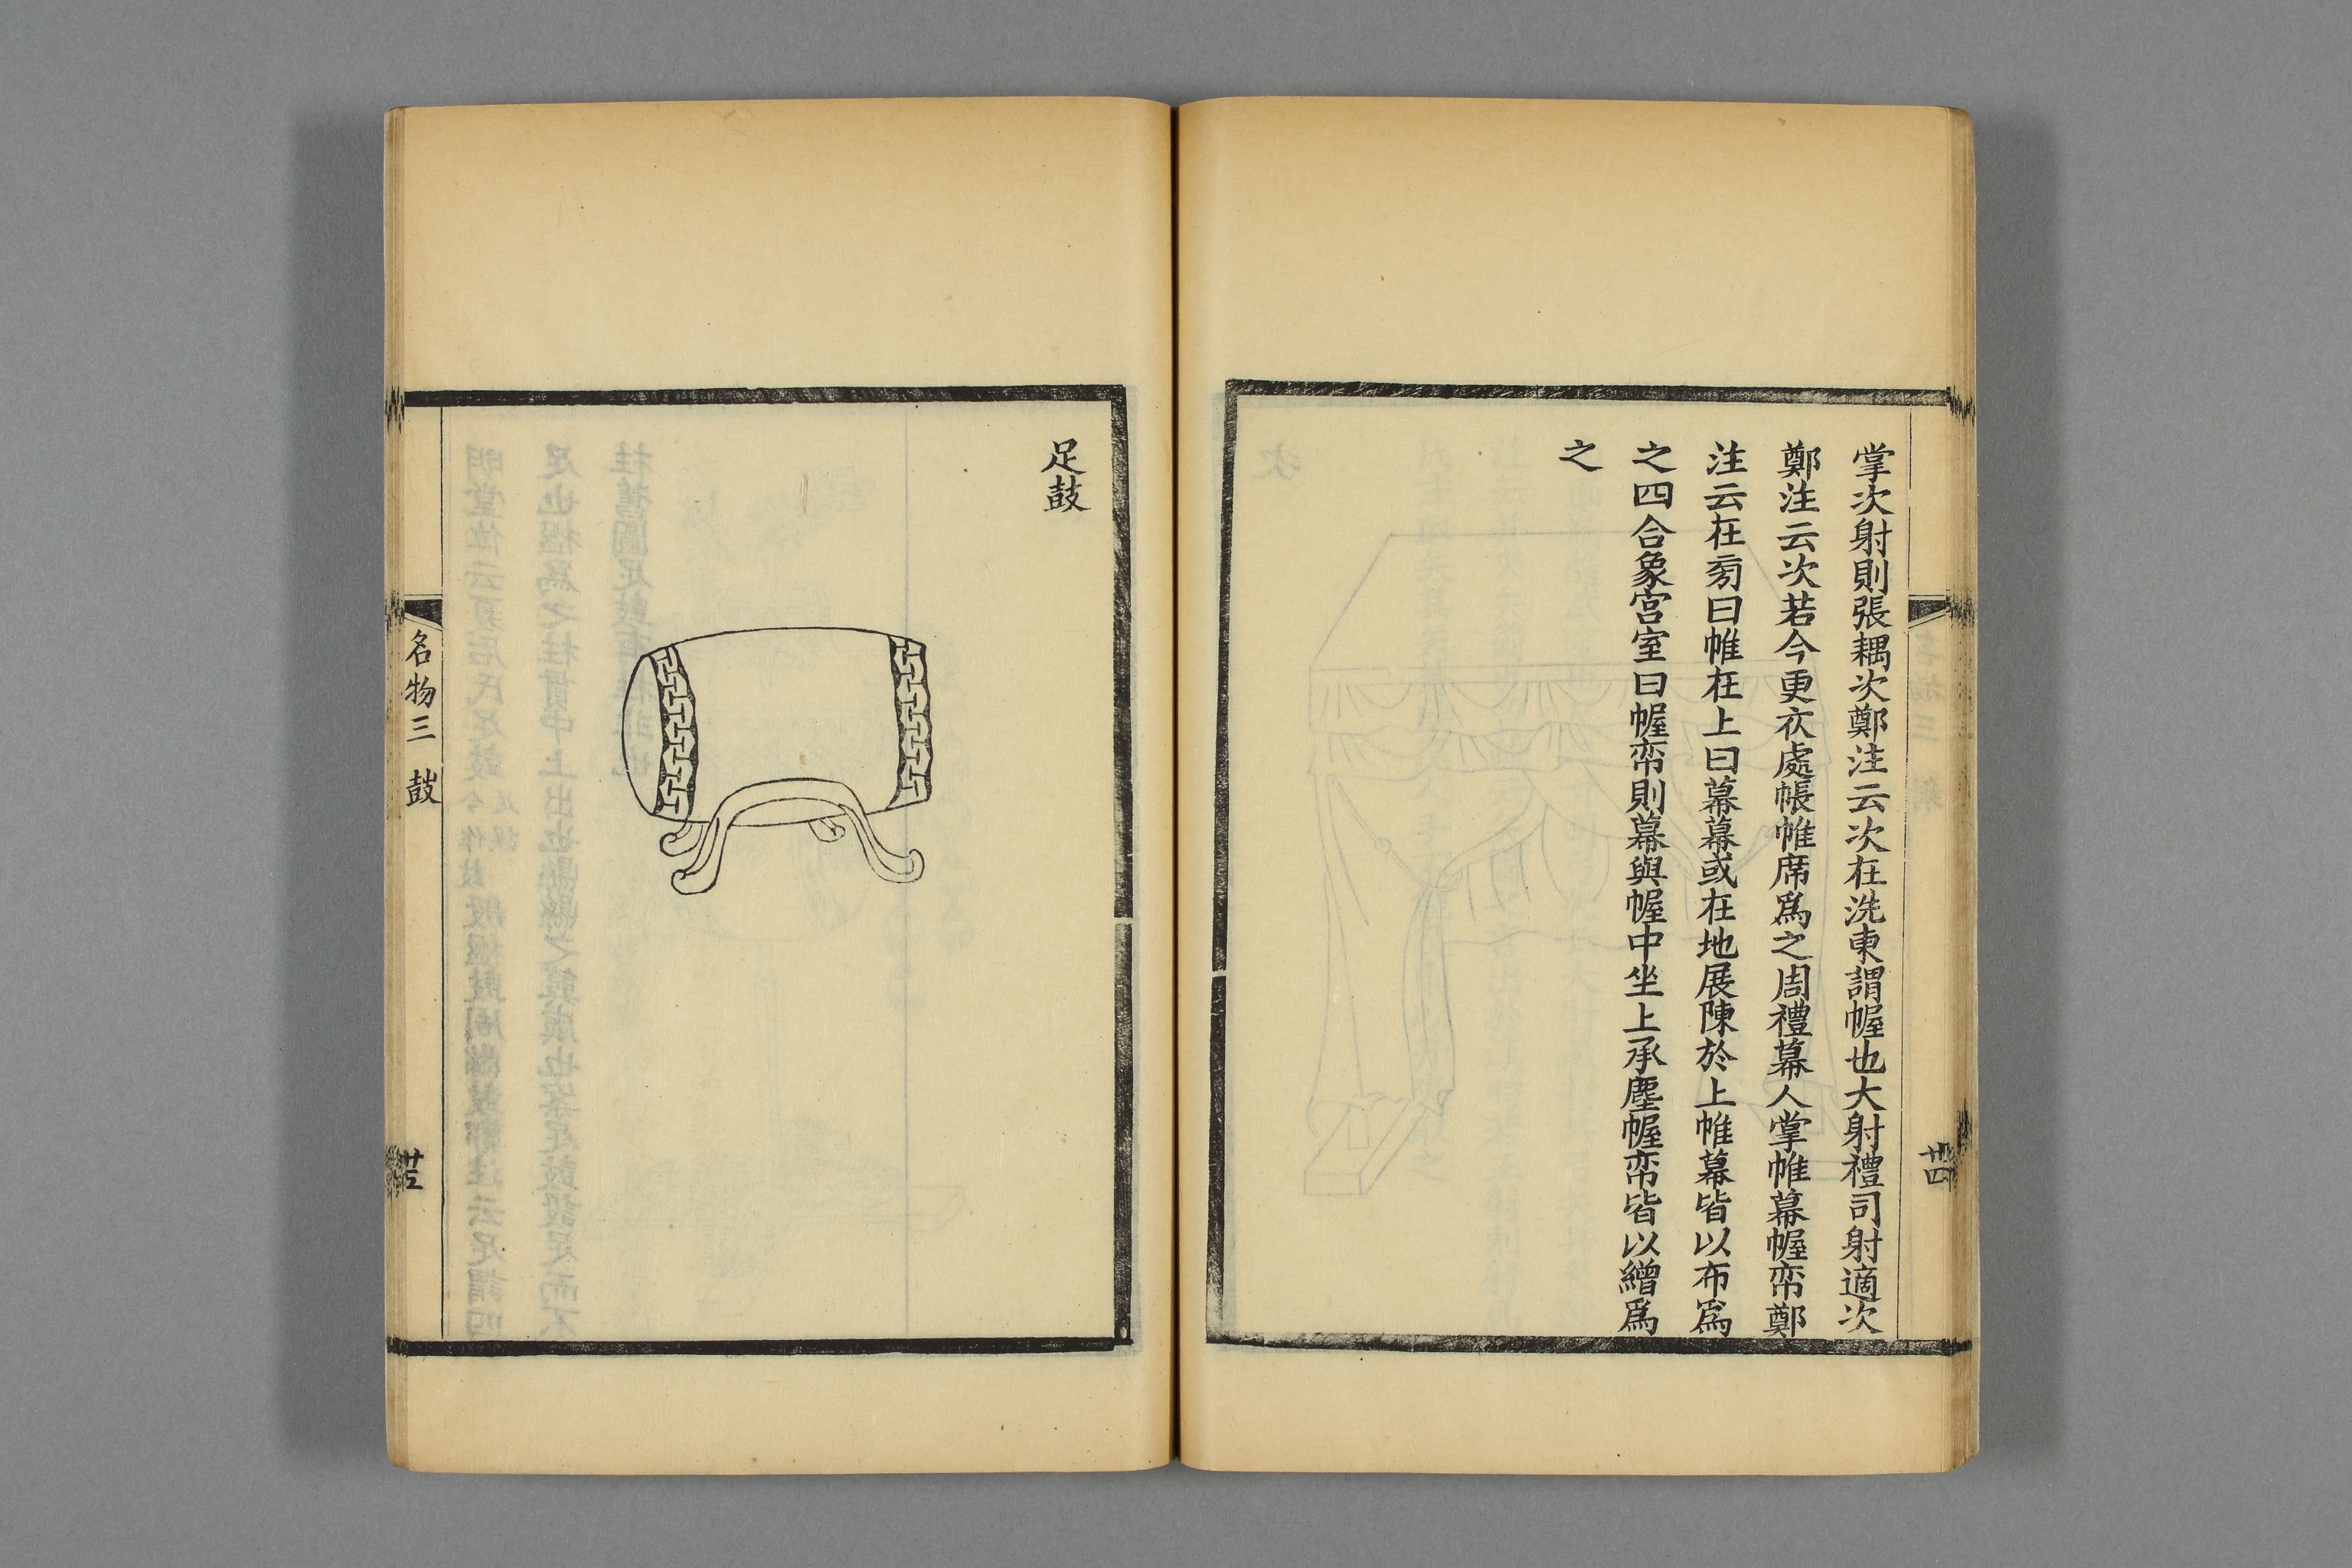 掌次射則張耦次鄭注云次在洗東謂幄也大射禮司射適次
鄭注云次若今更衣處帳帷席爲之周禮幕人掌帷幕幄帟鄭
注云在旁曰帷在上曰幕幕或在地展陳於上帷幕皆以布爲
之四合象宮室曰幄帟則幕與幄中坐上承塵幄帟皆以繒爲
之
卌四
足鼓
名物三 鼓